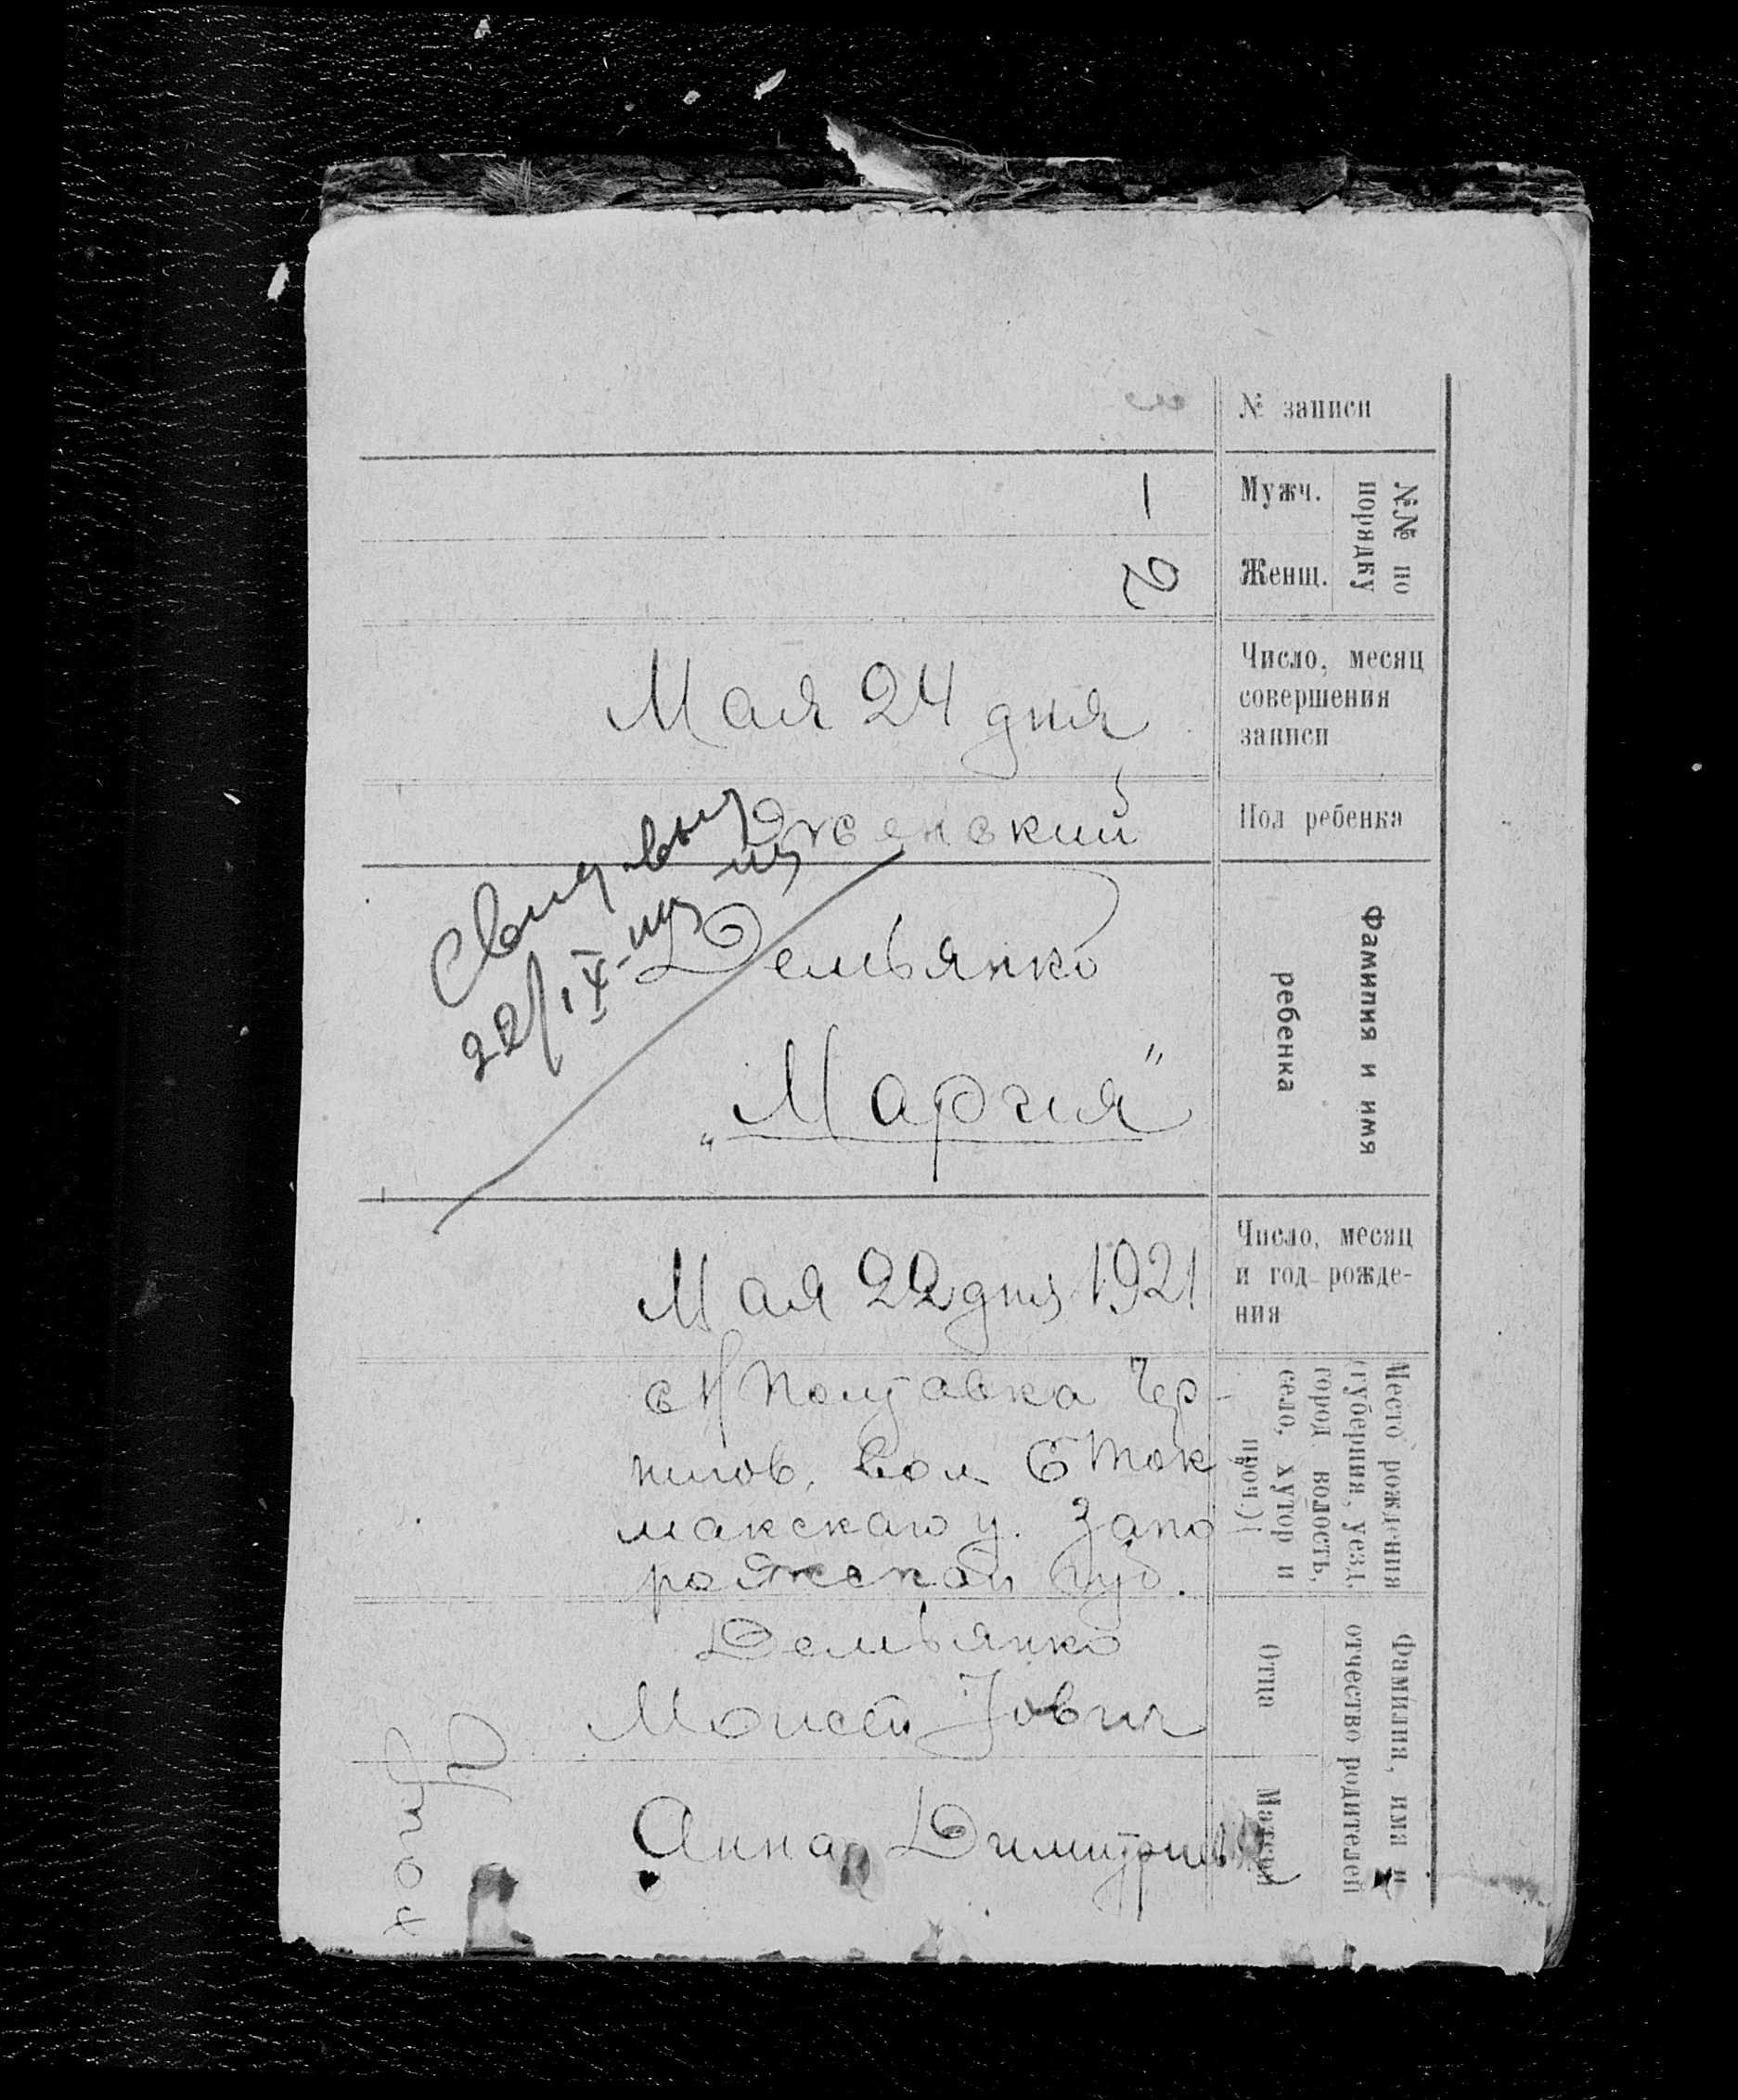 № записи
3
№№ по
порядку
Мужч.
1
Женщ.
2
Число, месяц
совершения
записи
Мая 24 дня
Пол ребенка
Женский
Фамилия и имя
ребенка
Демьянко
„Мария"
Число, месяц
и год рожде-
ния
Мая 22 дня 1921
Место рождения
(губерния, уезд,
город волость,
село, хутор и
проч.)
с Н Полтавка Чер-
нигов. вол Б Ток
макскаго у. Запо
рожской губ.
Фамилия, имя и
отчество родителей
Отца
Демьянко
Моисей Iович
Матери
Анна Димитриев
22/IX-